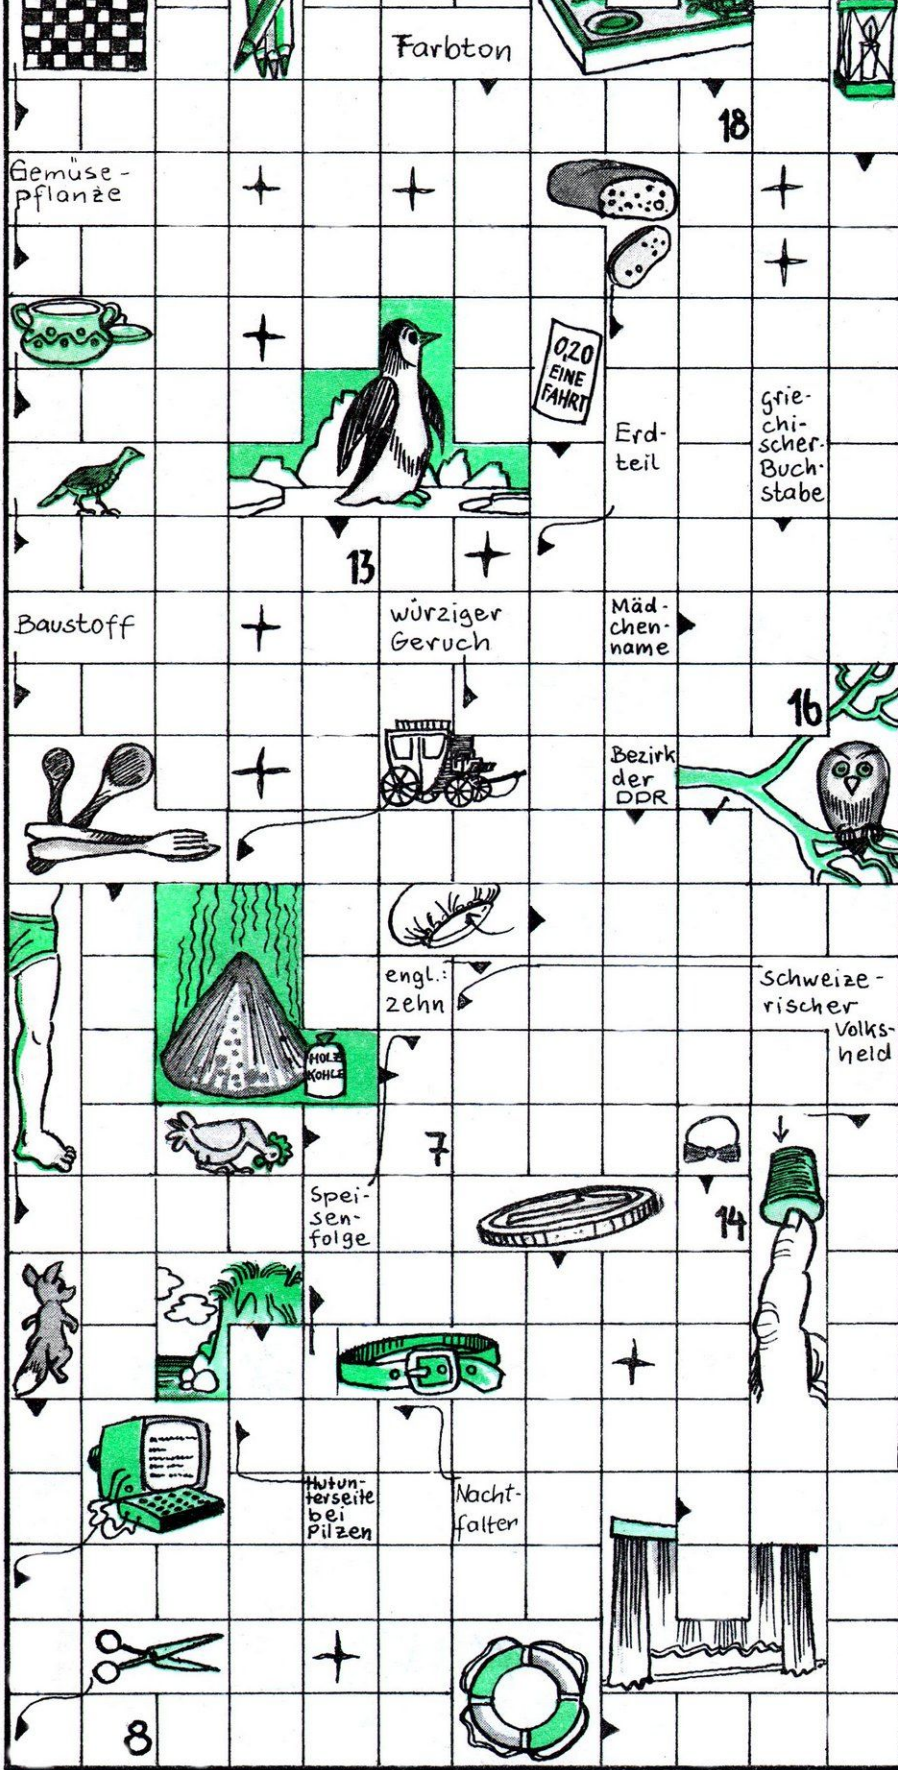 Farbton
18
Gemüse-
pflanze
0,20
EINE
FAHRT
grie-
chi-
scher
Buch-
stabe
Erd-
teil
13
Baustoff
würziger
Geruch
Mäd-
chen-
name
16
Bezirk
der
DDR
engl.:
zehn
Schweize-
rischer
Volks-
held
HOLZ
KOHLE
7
Spei-
sen-
folge
14
Hutun-
terseite
bei
Pilzen
Nacht-
falter
8